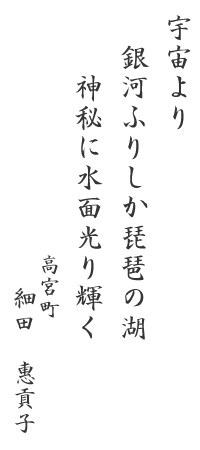 宇宙より
銀河ふりしか琵琶の湖
神秘に水面光り輝く
高宮町
細田　惠貢子